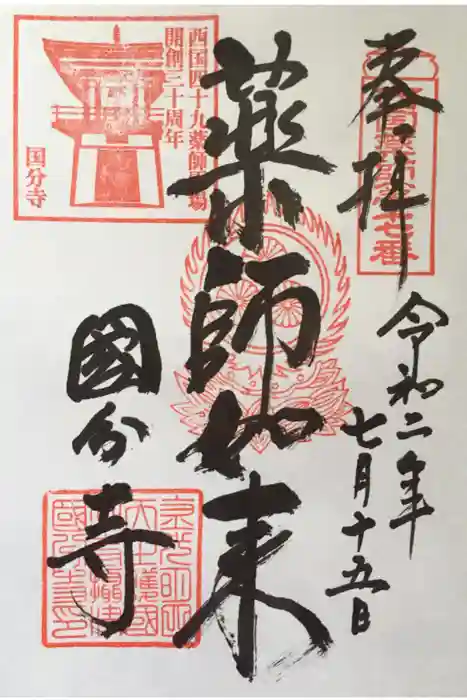 奉拝
令和二年
七月十五日
薬師如来
國分寺
西国四十九薬師霊場
開創三十周年
国分寺